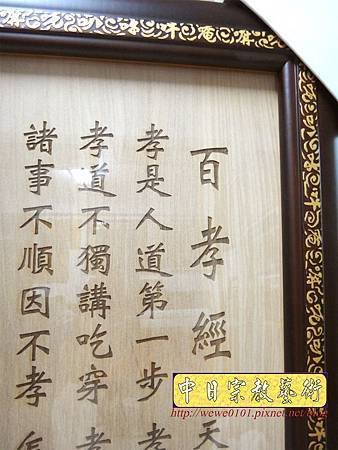 百孝經
天
孝是人道第一步 孝
孝道不獨講吃穿 孝
諸事不順因不孝 怎
中日宗教藝術
http://wewe0101.pixnet.net/blog